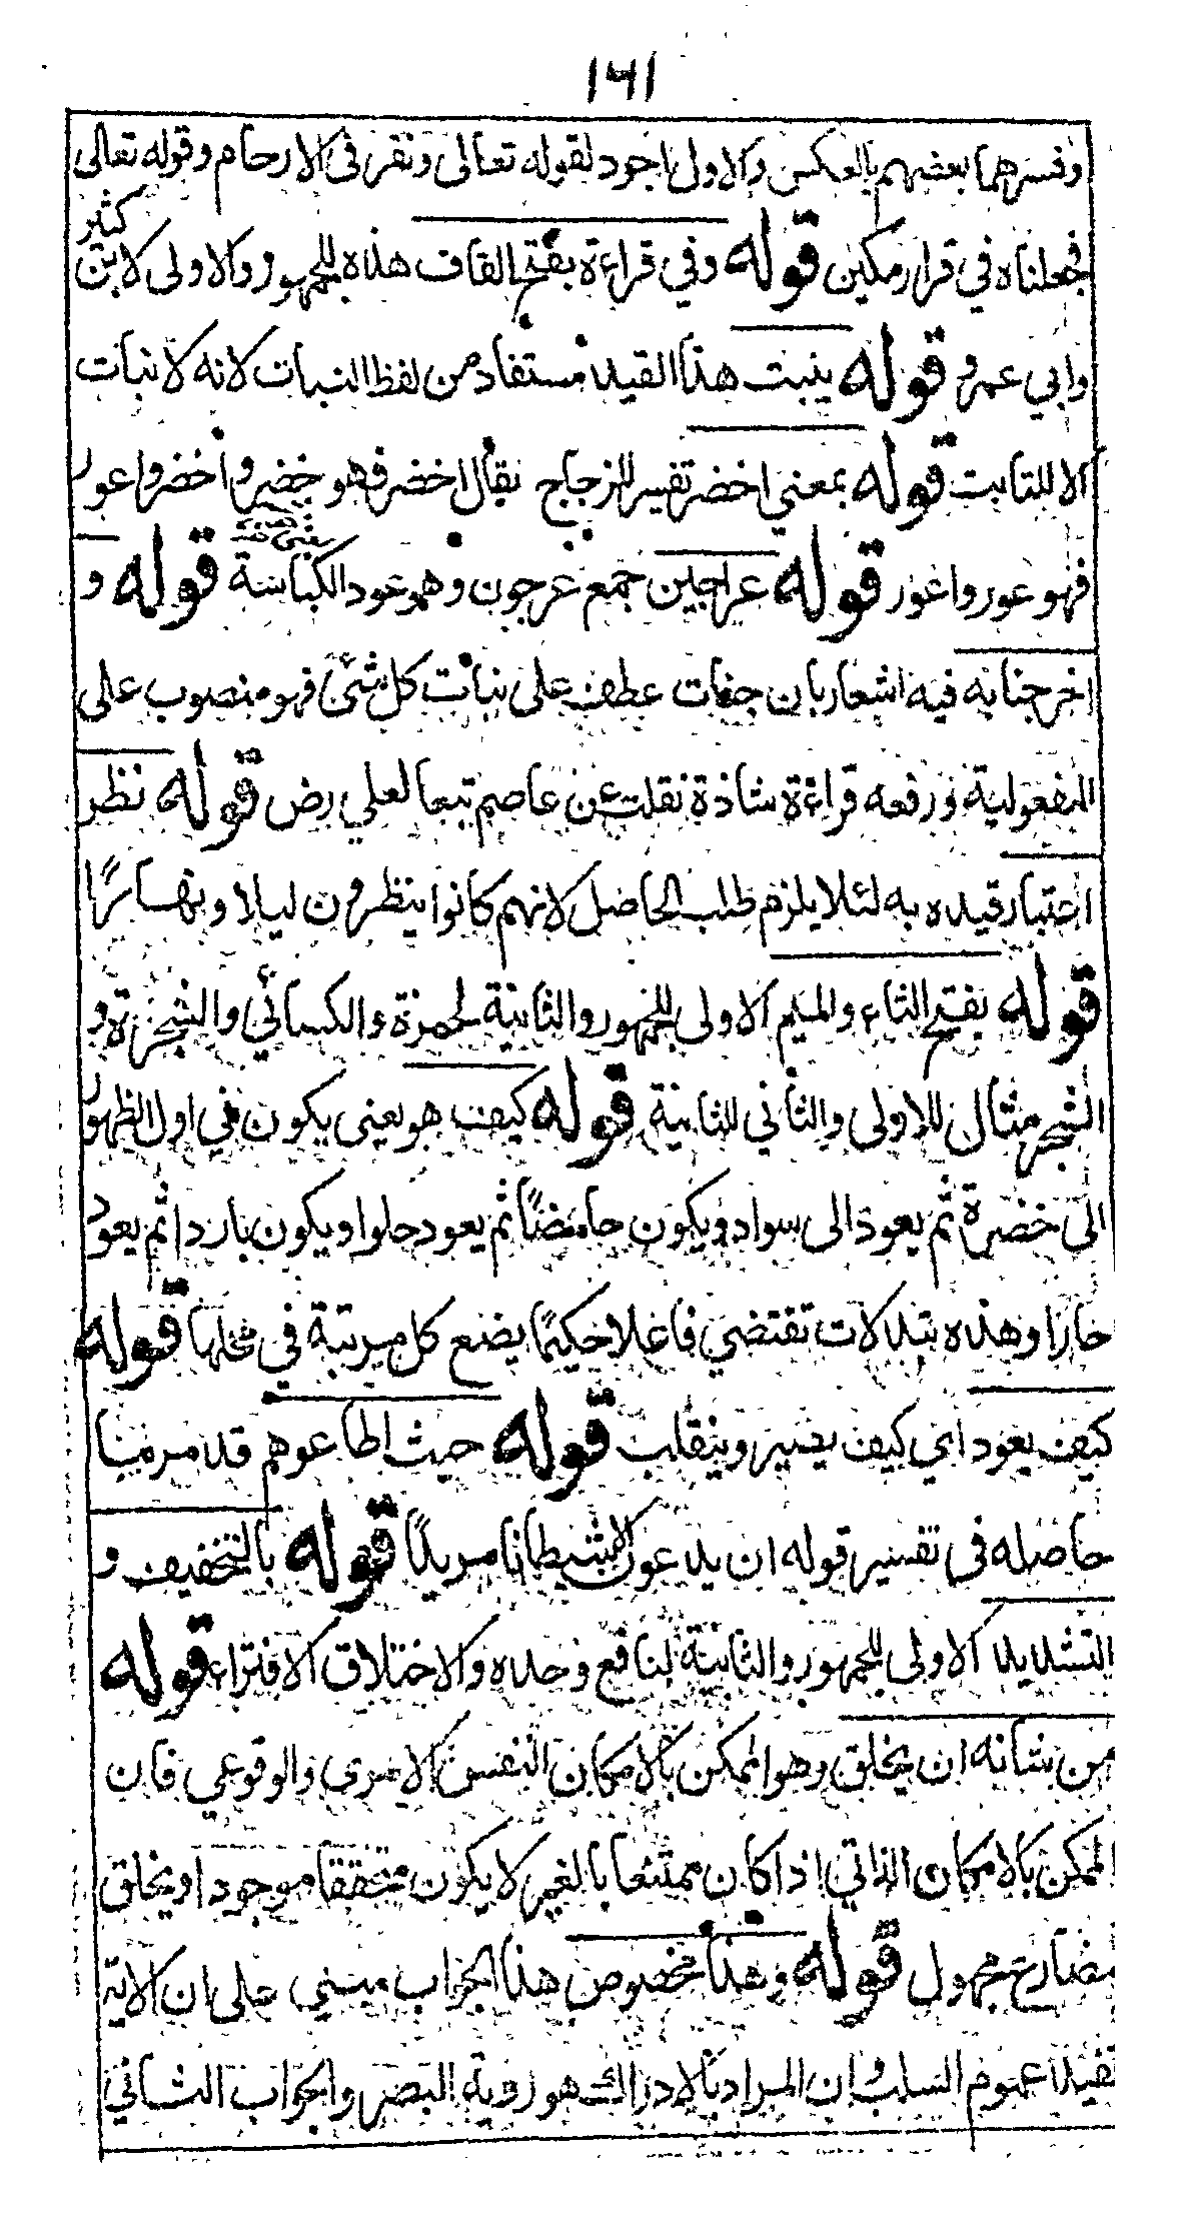 ١٦١
وفسرهما بعضهم بالعكس والاول اجود لقوله تعالى ونقر فى الارحام وقوله تعالى
فجعلناه في قرار مكين قوله وفي قراءة بفتح القاف هذه للجمهور والاولى لابن كثير
وابي عمرو قوله ينبت هذا القيد مستفاد من لفظ النبات لانه لا نبات
الا للثابت قوله بمعنى اخضر تفسير للزجاج يقال اخضر فهو خضر واخضر واعور
فهو عور واعور قوله عراجين جمع عرجون وهو عود الكباسة قوله و
اخرجنا به فيه اشعار بان جنات عطف على نبات كل شئ فهو منصوب على
المفعولية ورفعه قراءة شاذة نقلت عن عاصم تبعا لعلي رض قوله نظر
اعتبار قيده به لئلا يلزم طلب الحاصل لانهم كانوا ينظرون ليلا ونهارًا
قوله بفتح الثاء والميم الاولى للجمهور والثانية لحمزة والكسائي والشجرة و
الشجر مثال للاولى والثاني للثانية قوله كيف هو يعنى يكون في اول الظهور
الى خضرة ثم يعود الى سواد ويكون حامضًا ثم يعود حلوا ويكون باردا ثم يعود
حارا وهذه تبدلات تقتضي فاعلا حكيمًا يضع كل مرتبة في محلها قوله
كيف يعود اي كيف يصير وينقلب قوله حيث اطاعوهم قد مر منا
حاصله فى تفسير قوله ان يدعون الا شيطانا مريدًا قوله بالتخفيف و
التشديد الاولى للجمهور والثانية لنافع وحده والاختلاق الافتراء قوله
من شانه ان يخلق وهو الممكن بالامكان النفس الامرى والوقوعي فان
الممكن بالامكان الذاتي اذا كان ممتنعا بالغير لا يكون متحققا موجودا ويخلق
مضارع مجهول قوله وهذا مخصوص هذا الجواب مبني على ان الاية
تفيد عموم السلب وان المراد بالادراك هو روية البصر والجواب الثاني